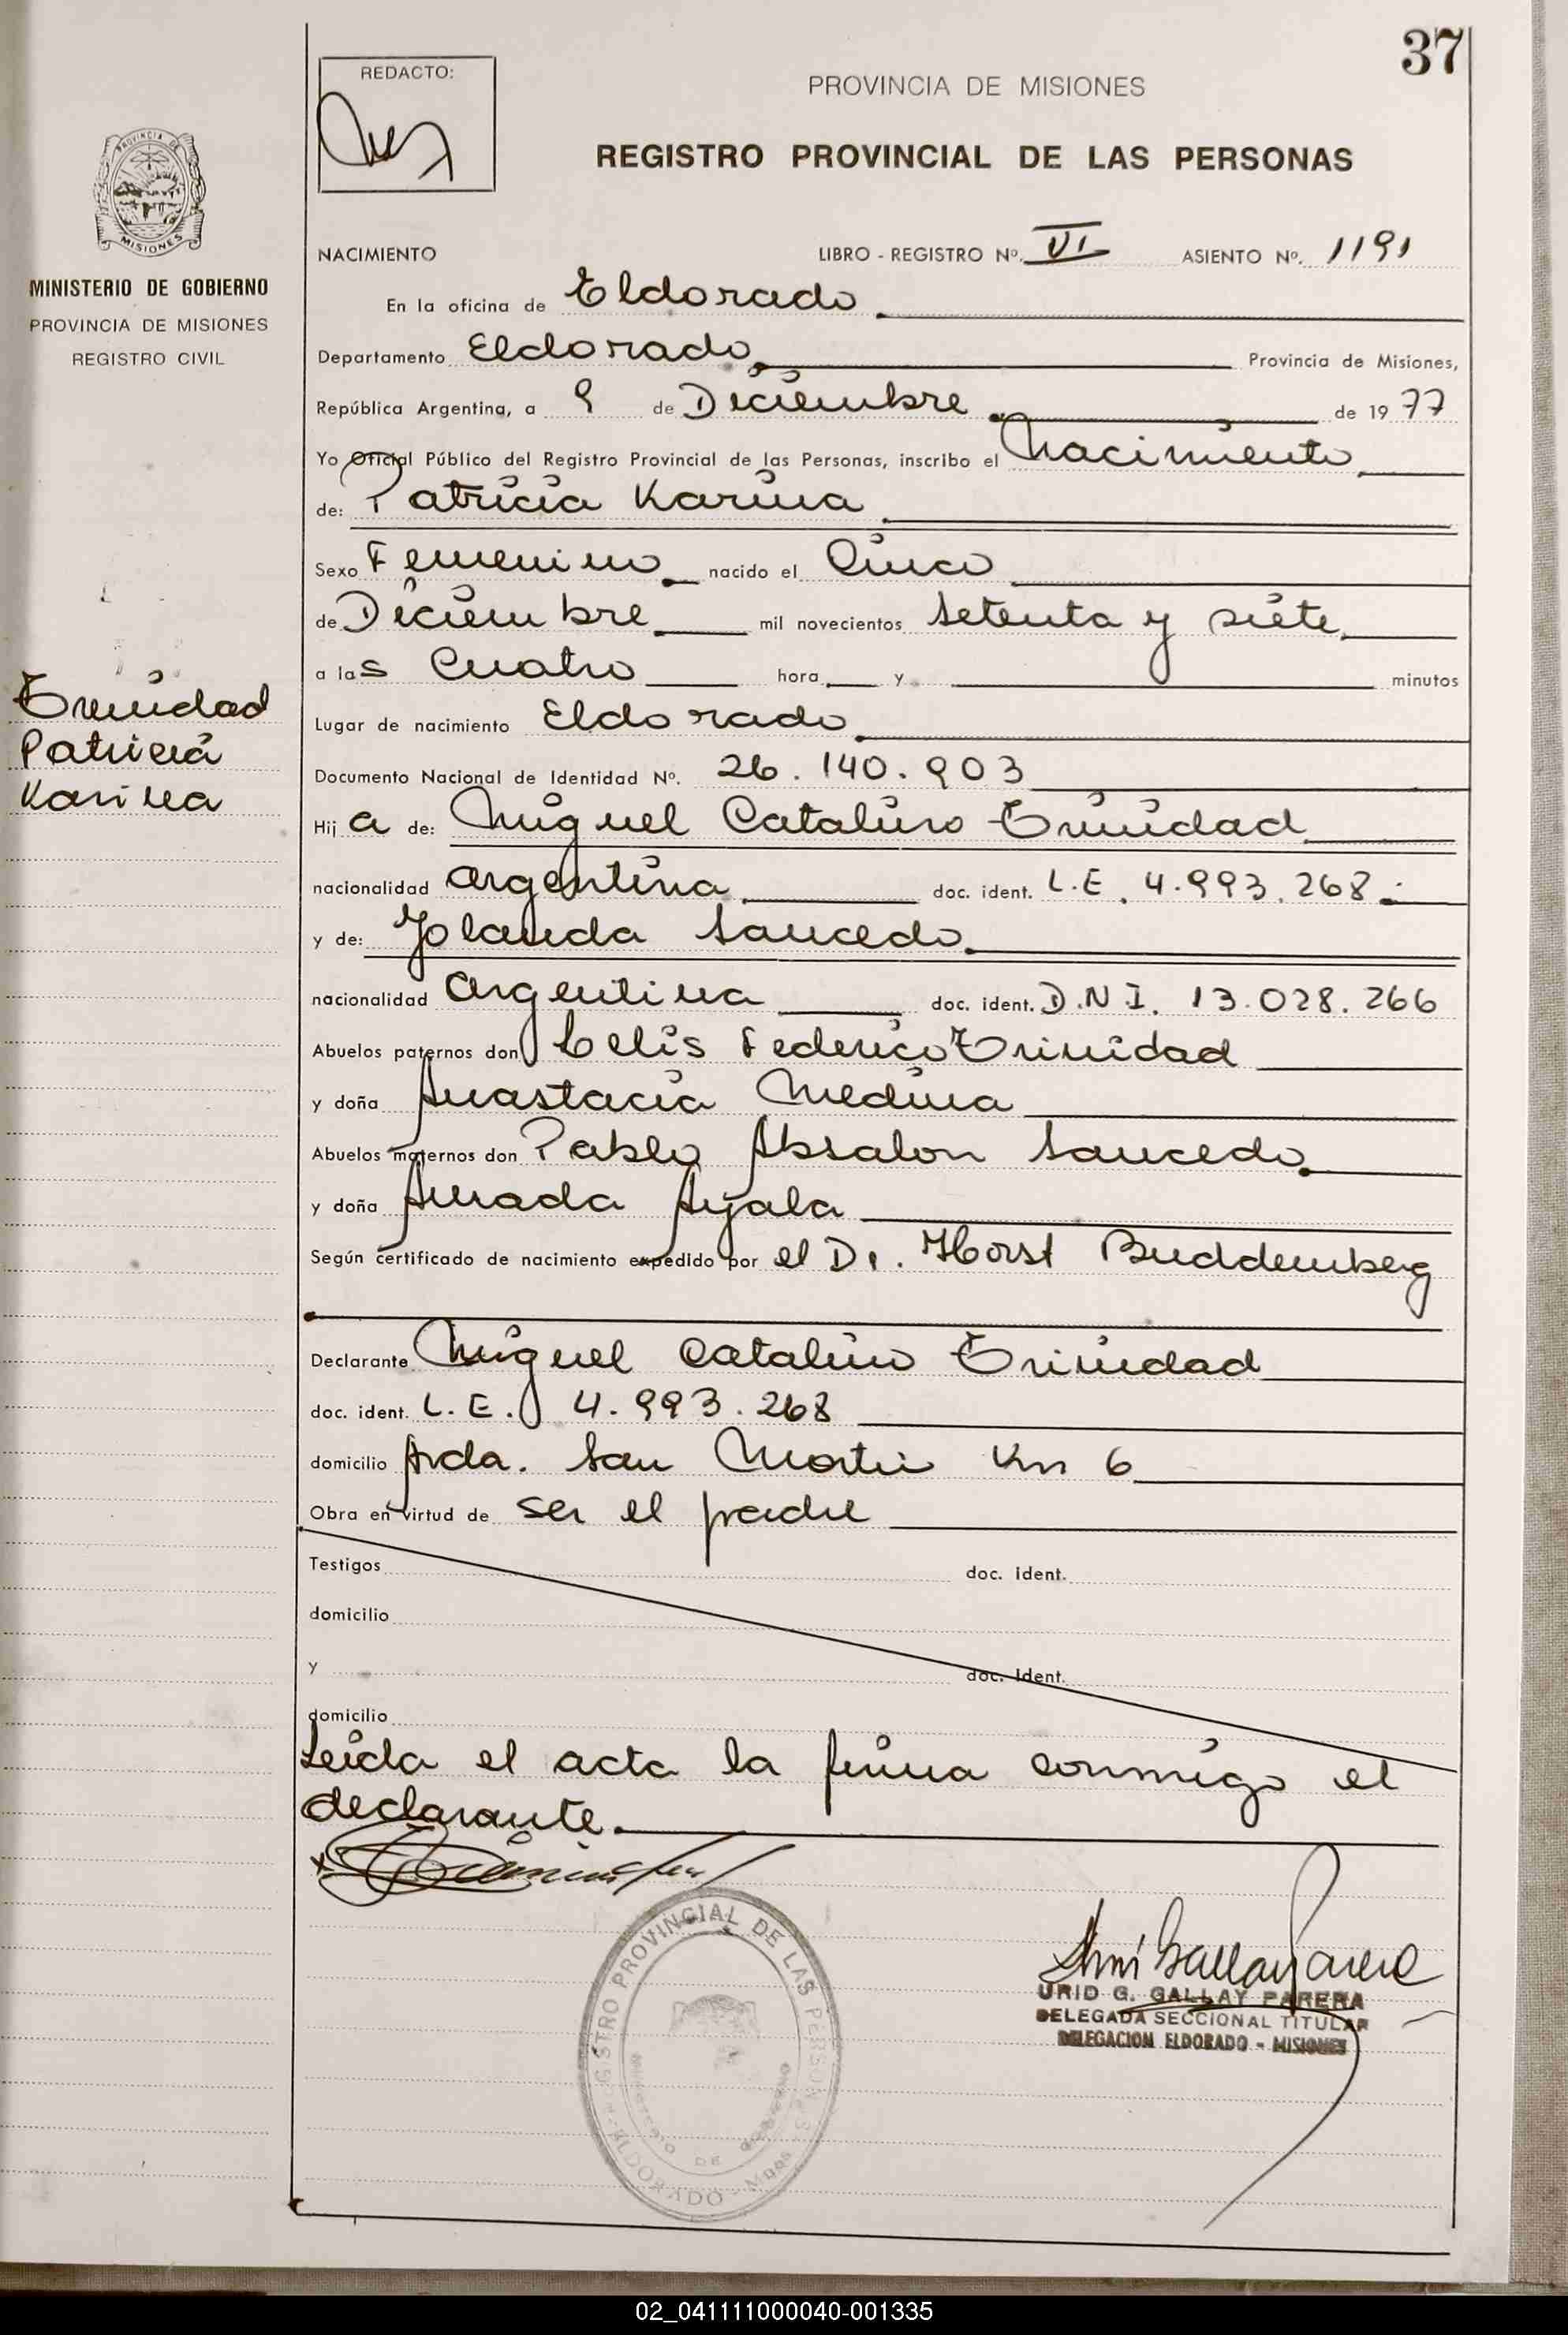 37
REDACTO:
PROVINCIA DE MISIONES
REGISTRO PROVINCIAL DE LAS PERSONAS
PROVINCIA DE
MISIONES
MINISTERIO DE GOBIERNO
PROVINCIA DE MISIONES
REGISTRO CIVIL
NACIMIENTO LIBRO - REGISTRO Nº. VI ASIENTO Nº. 1191
En la oficina de Eldorado
Departamento Eldorado Provincia de Misiones,
República Argentina, a 9 de Diciembre de 1977
Yo Oficial Público del Registro Provincial de las Personas, inscribo el Nacimiento
de: Patricia Karina
Sexo Femenino nacido el Cinco
de Diciembre mil novecientos setenta y siete
a las Cuatro hora y minutos
Trinidad
Patricia
Karina
Lugar de nacimiento Eldorado
Documento Nacional de Identidad Nº. 26.140.903
Hija de: Miguel Catalino Trinidad
nacionalidad argentina doc. ident. L.E. 4.993.268.-
y de: Yolanda Saucedo
nacionalidad argentina doc. ident. D.N.I. 13.028.266
Abuelos paternos don Celis Federico Trinidad
y doña Anastacia Medina
Abuelos maternos don Pablo Absalon Saucedo
y doña Ayala
Según certificado de nacimiento expedido por el Dr. Horst Buddemberg
Declarante Miguel Catalino Trinidad
doc. ident. L.E. 4.993.268
domicilio Avda. San Martin Km 6
Obra en virtud de ser el padre
Testigos doc. ident.
domicilio
y doc. ident.
domicilio
Leida el acta la firma conmigo el
declarante.
REGISTRO PROVINCIAL DE LAS PERSONAS
ELDORADO - Mnes
MINISTERIO DE GOBIERNO
URID G. GALLAY PARERA
DELEGADA SECCIONAL TITULAR
DELEGACION ELDORADO - MISIONES
02_041111000040-001335